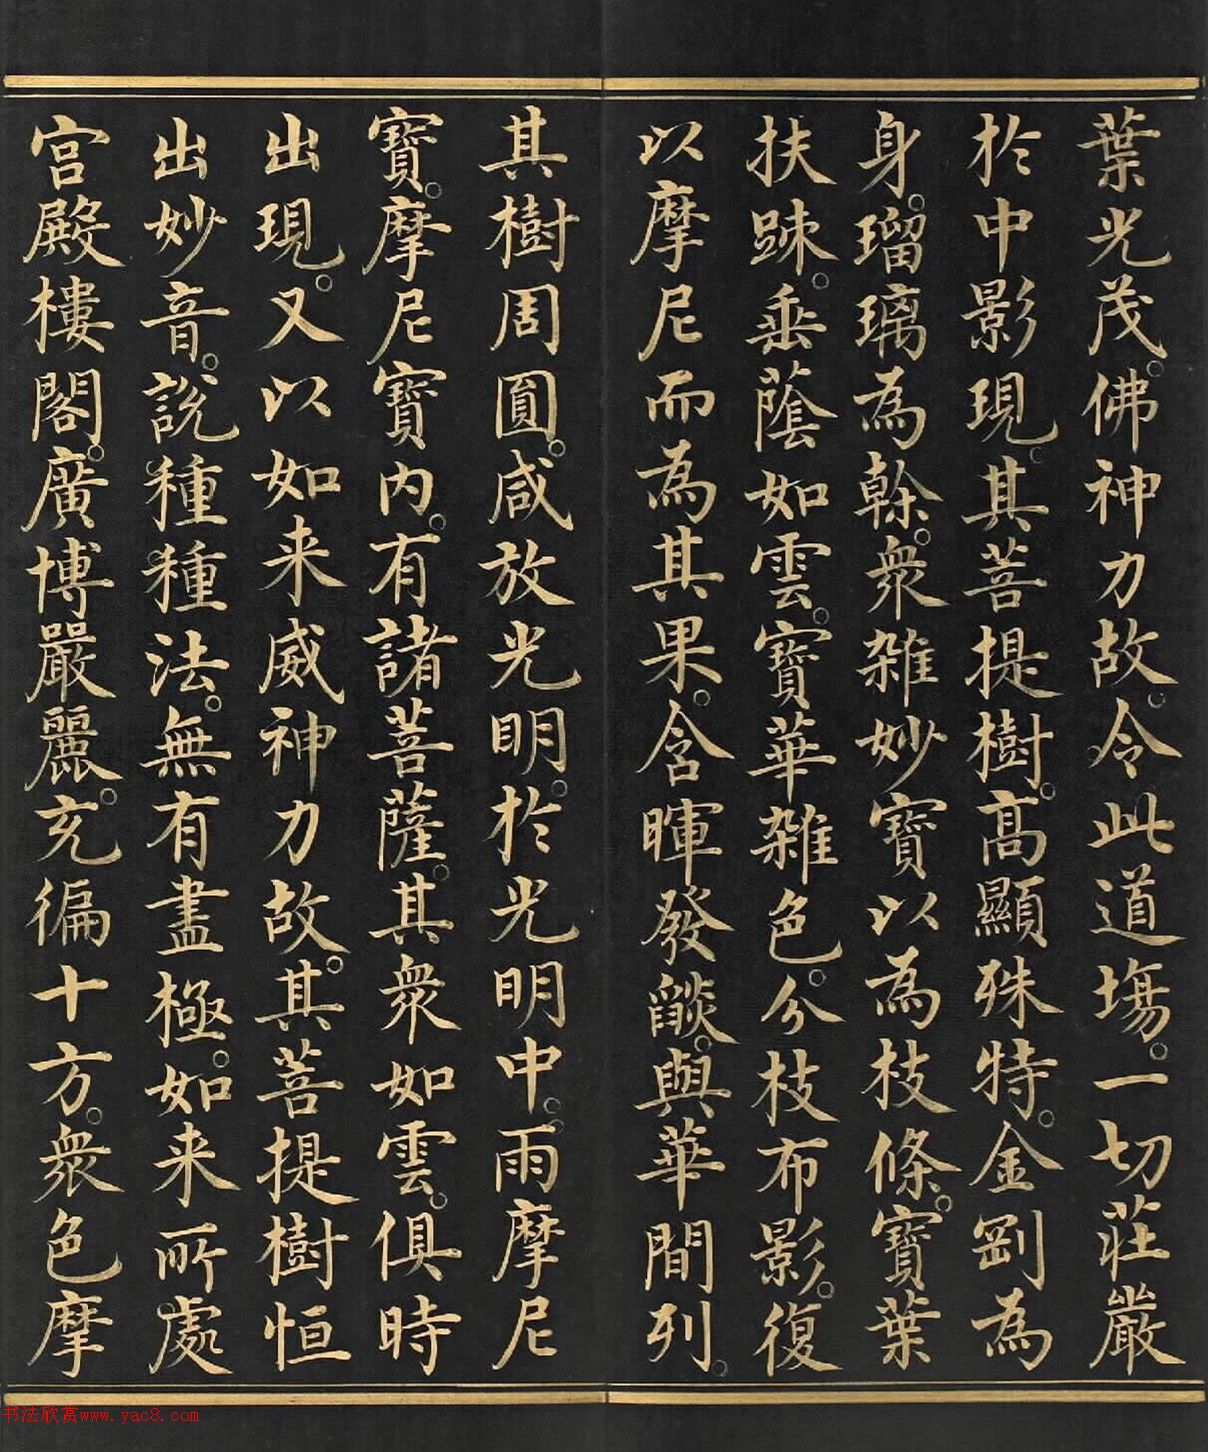 葉光茂。佛神力故。令此道場。一切莊嚴
於中影現。其菩提樹。高顯殊特。金剛為
身。瑠璃為幹。眾雜妙寶。以為枝條。寶葉
扶踈。垂蔭如雲。寶華雜色。分枝布影。復
以摩尼而為其果。含暉發燄。與華間列。
其樹周圓。咸放光明。於光明中。雨摩尼
寶。摩尼寶內。有諸菩薩。其眾如雲。俱時
出現。又以如来威神力故。其菩提樹恒
出妙音。說種種法。無有盡極。如来所處
宮殿樓閣。廣博嚴麗。充徧十方。眾色摩
书法欣赏www.yac8.com